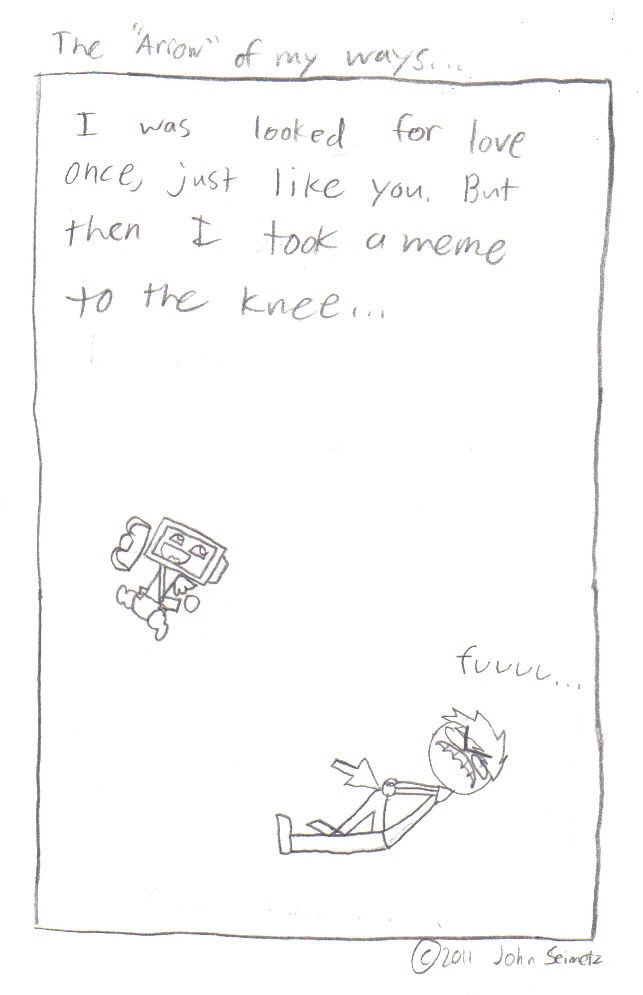 The "Arrow" of my ways...
I was looked for love
once, just like you. But
then I took a meme
to the knee...
fuuuu...
©2011 John Seimetz